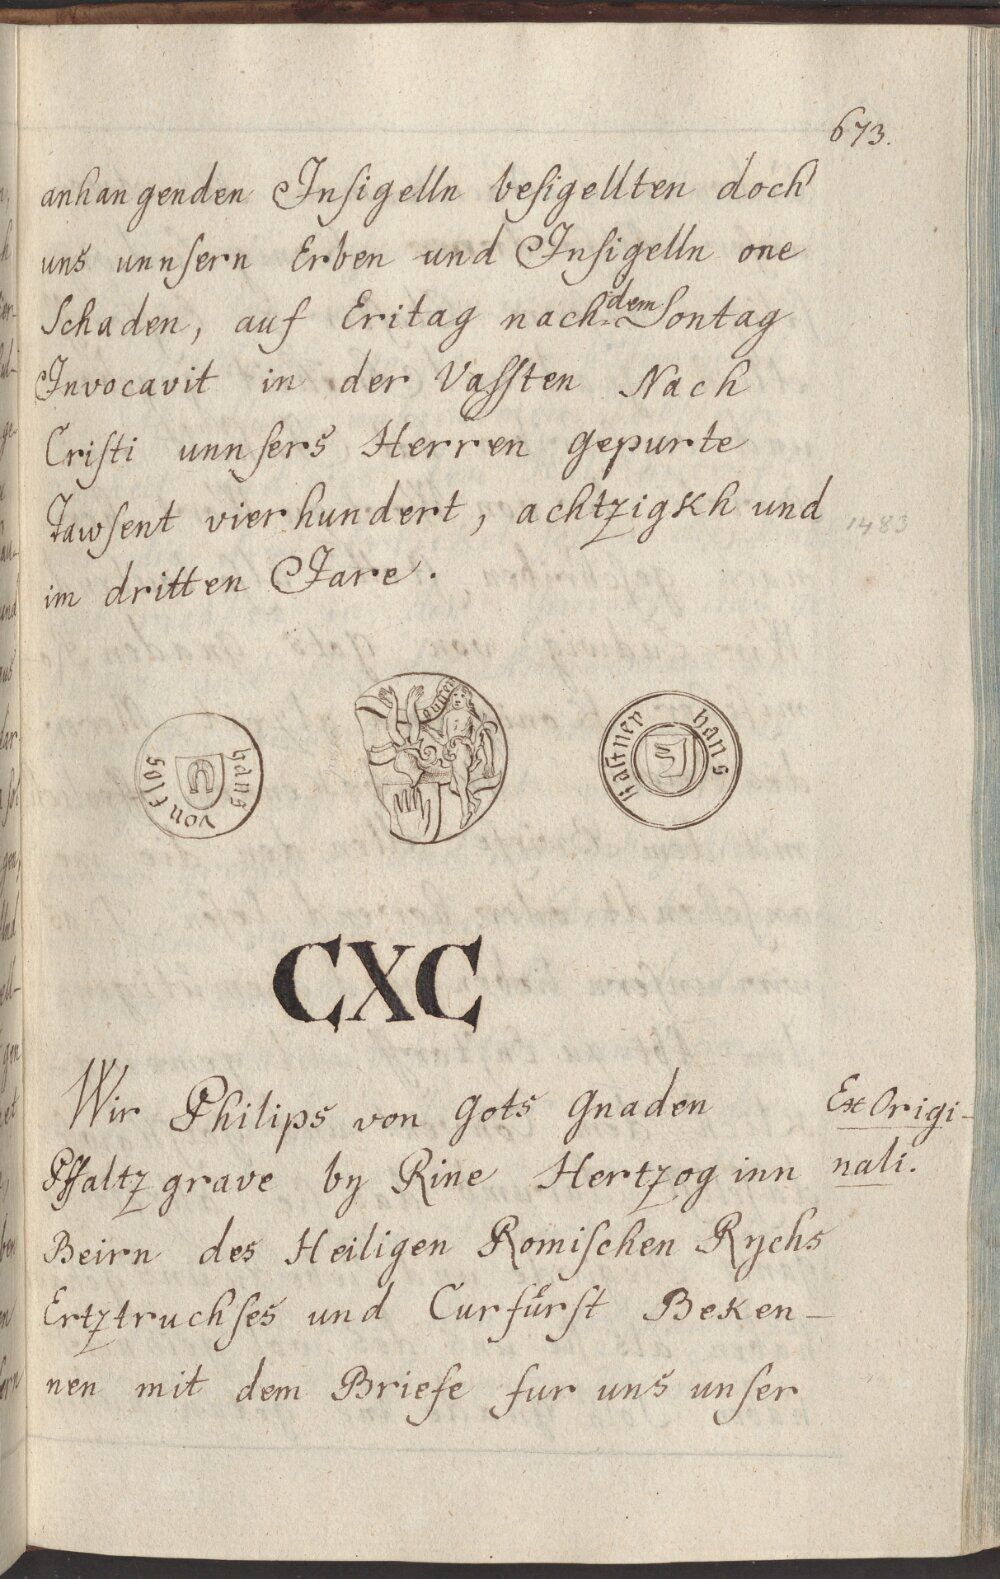 673.
anhangenden Insigelln besigellten doch
uns unnsern Erben und Insigelln one
Schaden, auf Eritag nach dem Sontag
Invocavit in der Vassten Nach
Cristi unnsers Herren gepurte
Tawsent vierhundert, achtzigkh und
1483
im dritten Jare.
hans von Els
hans Kastner
CXC
Wir Philips von Gots Gnaden
Pfaltzgrave by Rine Hertzog inn
Beirn des Heiligen Romischen Rychs
Ertztruchses und Curfürst Beken-
nen mit dem Briefe fur uns unser
Ex Origi-
nali.